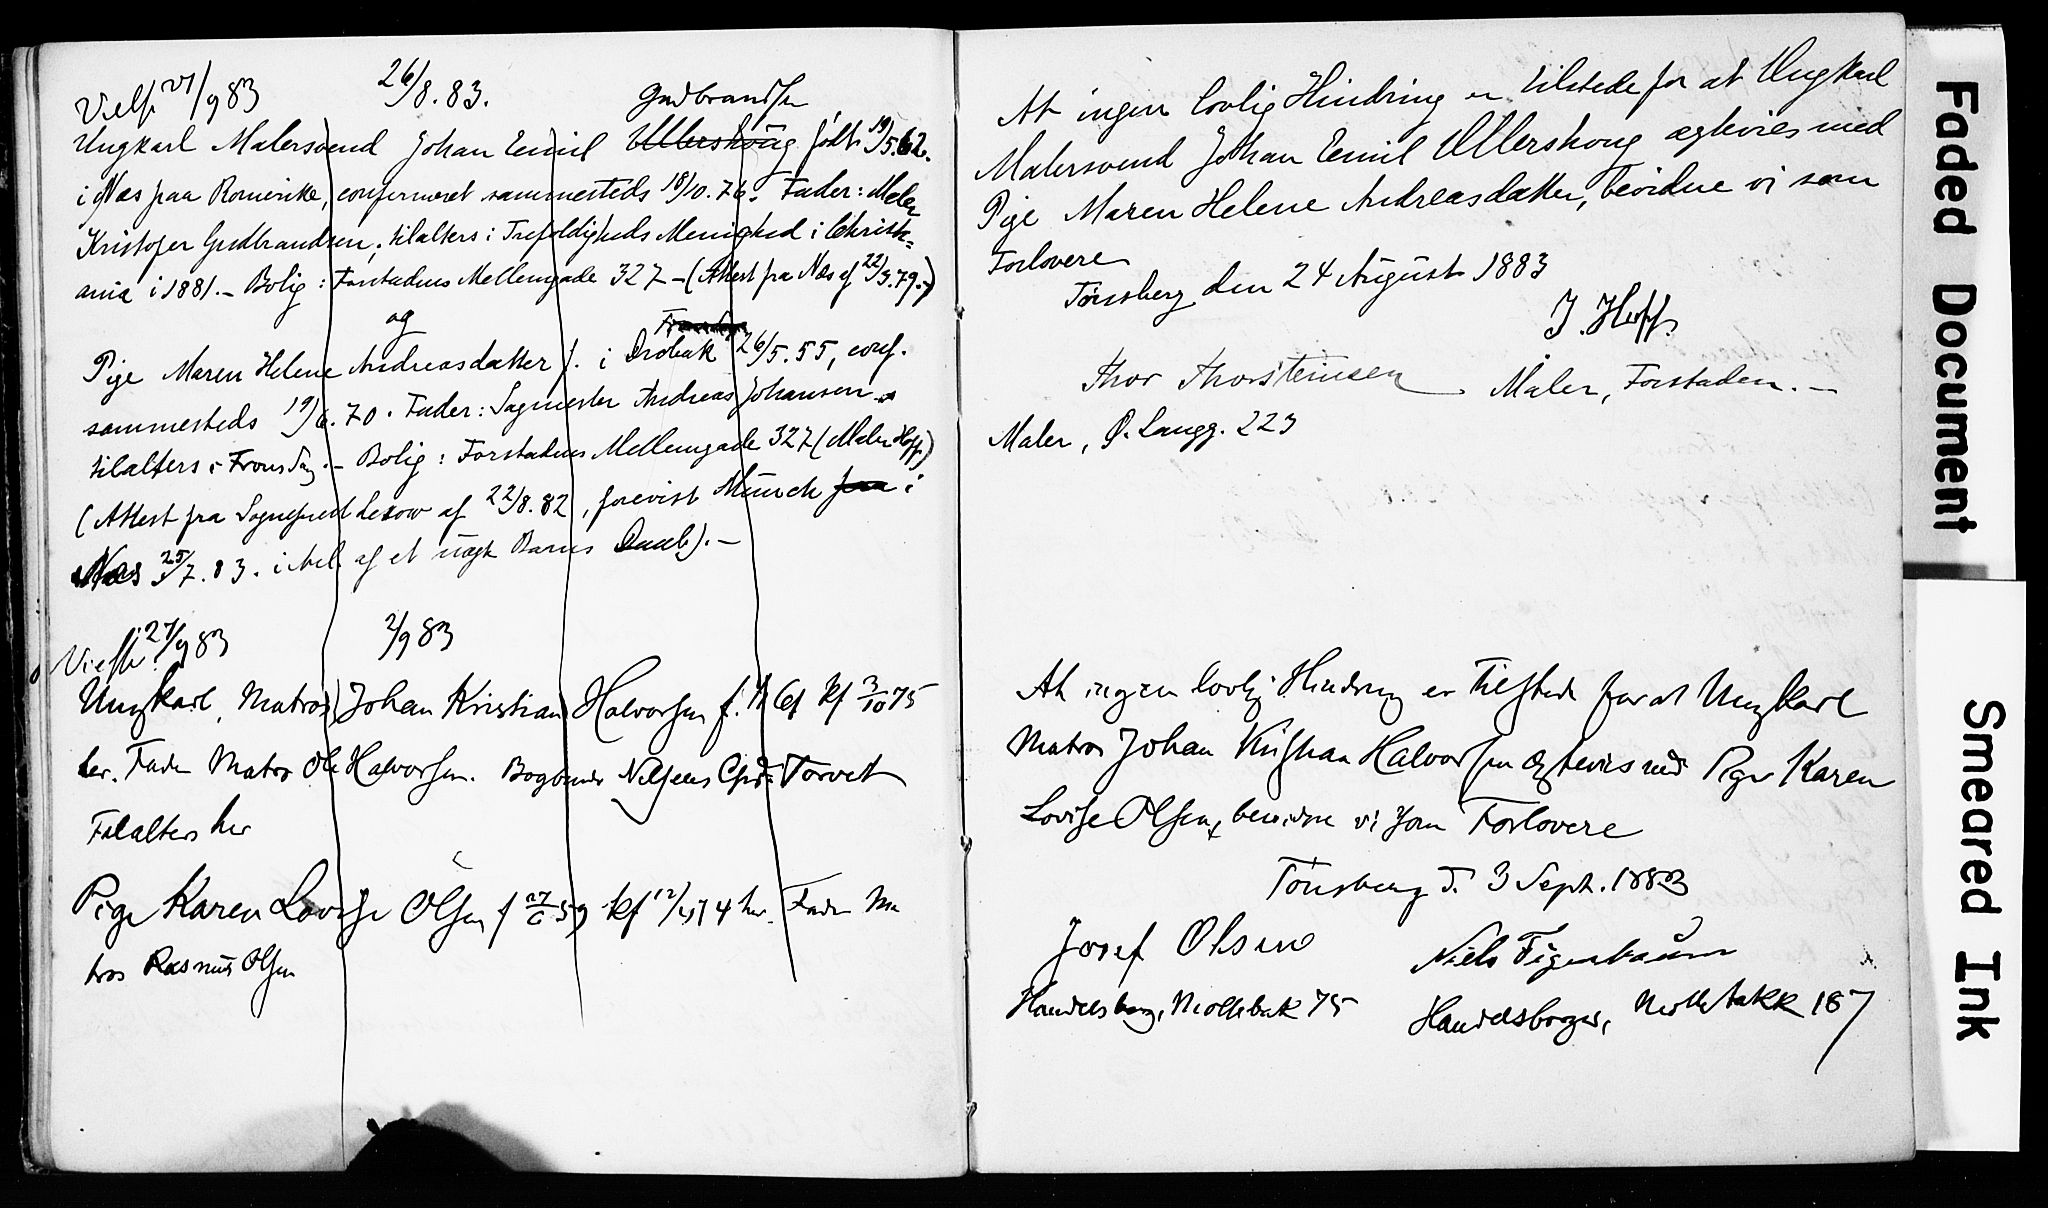 Viet 21/9 83 26/8. 83. Gudbrandsen
Ungkarl Malersvend Johan Emil Ullershoug født 19/5. 62.
i Næs paa Romerike, confirmeret sammesteds 18/10. 76. Fader: Maler
Kristofer Gudbrandsen, tilalters i Trefoldigheds Menighed i Christi=
ania i 1881. – Bolig: Forstadens Mellemgade 327 – (Attest fra Næs af 22/3. 79. –)
og
Pige Maren Helene Andreasdatter f. i Drøbak 26/5. 55, conf.
sammesteds 19/6. 70. Fader: Sagmester Andreas Johansen
tilalters i . – Bolig: Forstadens Mellemgade 327 (Maler Hoff)
(Attest fra Sognepræst af 22/8. 82, forevist Münch fra i
Næs 25/7. 83. i af et uægte Barns Daab). –
Viet 27/9 83 2/9 83
Ungkarl, Matros, Johan Kristian Halvorsen f. 61 kf 3/10 75
her. Fader Matros Ole Halvorsen. Bogbinder Nilsens Torvet
Tilalters her
Pige Karen Lovise Olsen f 27/6 59 kf 12/4 74 her. Fader Ma
tros Rasmus Olsen
At ingen lovlig Hindring er tilstede for at Ungkarl
Malersvend Johan Emil Ullershoug ægtevies med
Pige Maren Helene Andreasdatter, bevidne vi som
Forlovere
Tønsberg den 24 August 1883
J. Hoff.
Thor Thorsteinsen Maler, Forstaden. –
Maler, Ø. Langg. 223
At ingen lovlig Hindring er tilstede for at Ungkarl
Matros Johan Kristian Halvorsen ægtevies med Pige Karen
Lovise Olsen, bevidne vi som Forlovere
Tønsberg d. 3 Sept. 1883
Josef Olsen Niels Figenbaum
Handelsborg, Møllebak 75 Handelsborger, Møllebakk 187
Faded Document
Smeared Ink